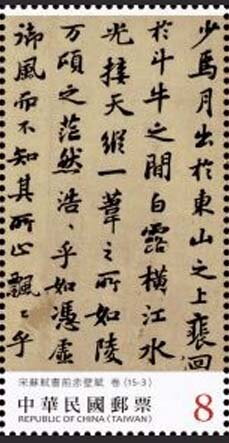 少焉月出於東山之上裵回
於斗牛之間白露橫江水
光接天縱一葦之所如陵
万頃之茫然浩〻乎如憑虛
御風而不知其所止飄〻乎
宋蘇軾書前赤壁賦 卷 (15-3)
中華民國郵票
REPUBLIC OF CHINA (TAIWAN)
8